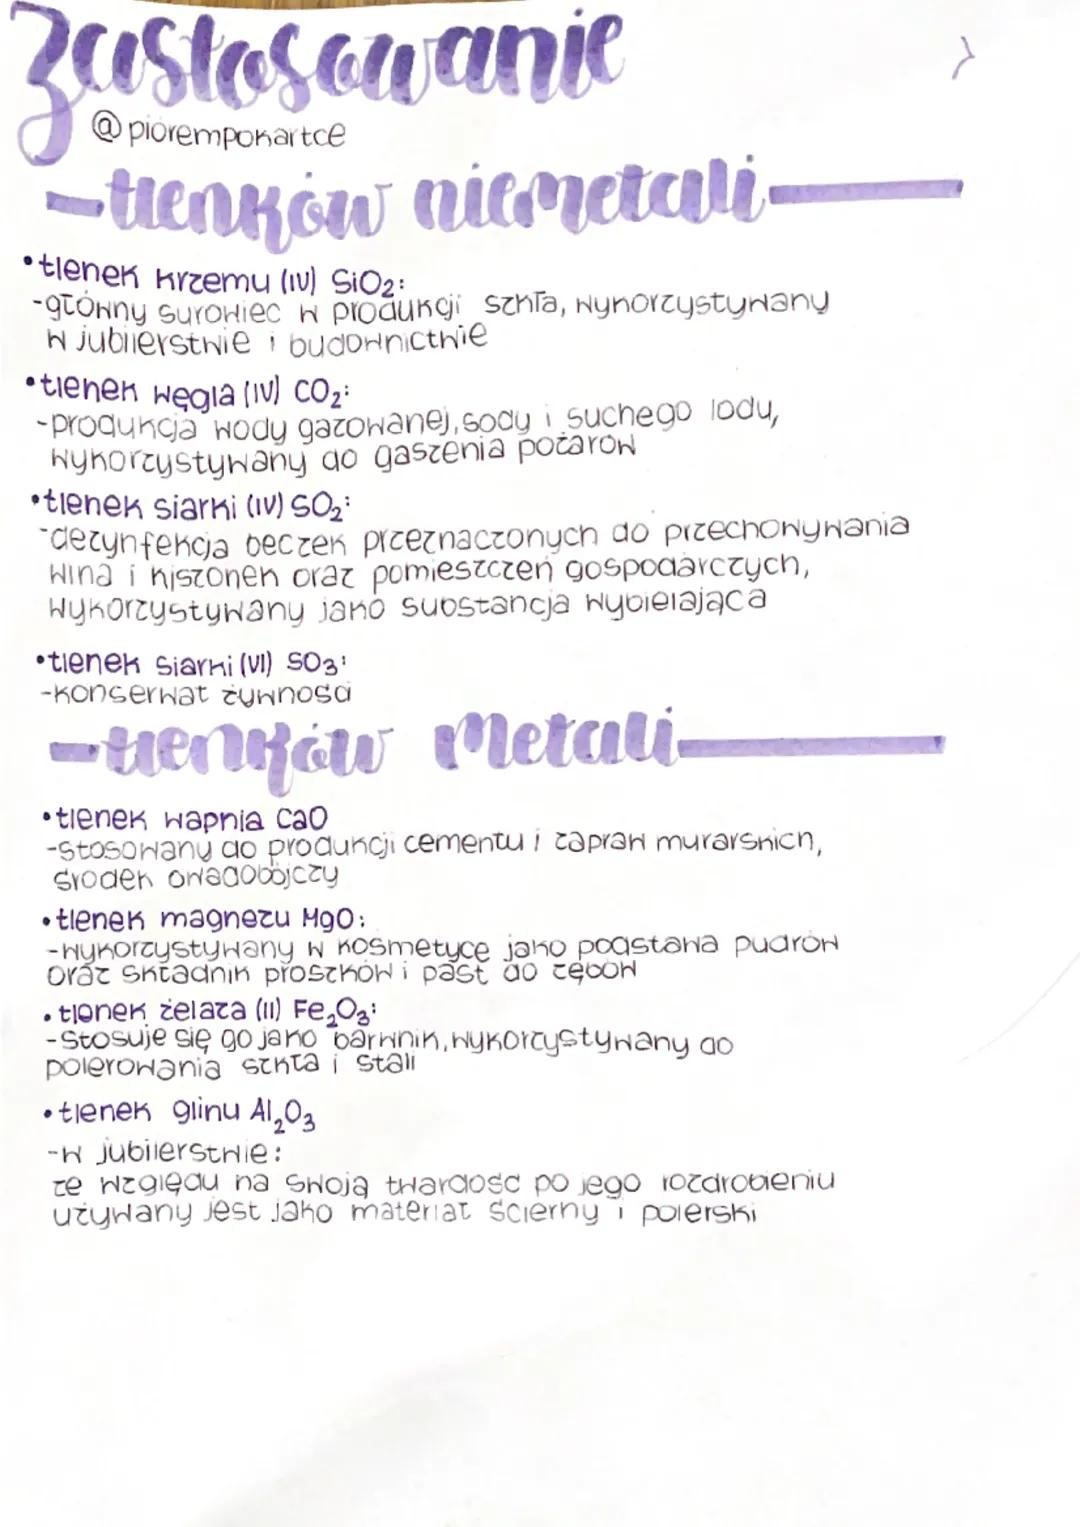 zastosowanie
@piorempokartce
-tlenków niemetali-
•tlenek krzemu (IV) SiO₂:
-główny surowiec w produkcji szkła, wykorzystywany
w jubilerstwie i budownictwie
•tlenek węgla (IV) CO₂:
-produkcja wody gazowanej, sody i suchego lodu,
wykorzystywany do gaszenia pożarów
•tlenek siarki (IV) SO₂:
-dezynfekcja beczek przeznaczonych do przechowywania
wina i kiszonek oraz pomieszczeń gospodarczych,
wykorzystywany jako substancja wybielająca
•tlenek siarki (VI) SO₃:
-konserwat żywności
-tlenków metali-
•tlenek wapnia CaO
-stosowany do produkcji cementu i zapraw murarskich,
środek owadobójczy
•tlenek magnezu MgO:
-wykorzystywany w kosmetyce jako podstawa pudrów
oraz składnik proszków i past do zębów
•tlenek żelaza (II) Fe₂O₃:
-stosuje się go jako barwnik, wykorzystywany do
polerowania szkła i stali
•tlenek glinu Al₂O₃
-w jubilerstwie:
ze względu na swoją twardość po jego rozdrobieniu
używany jest jako materiał ścierny i polerski